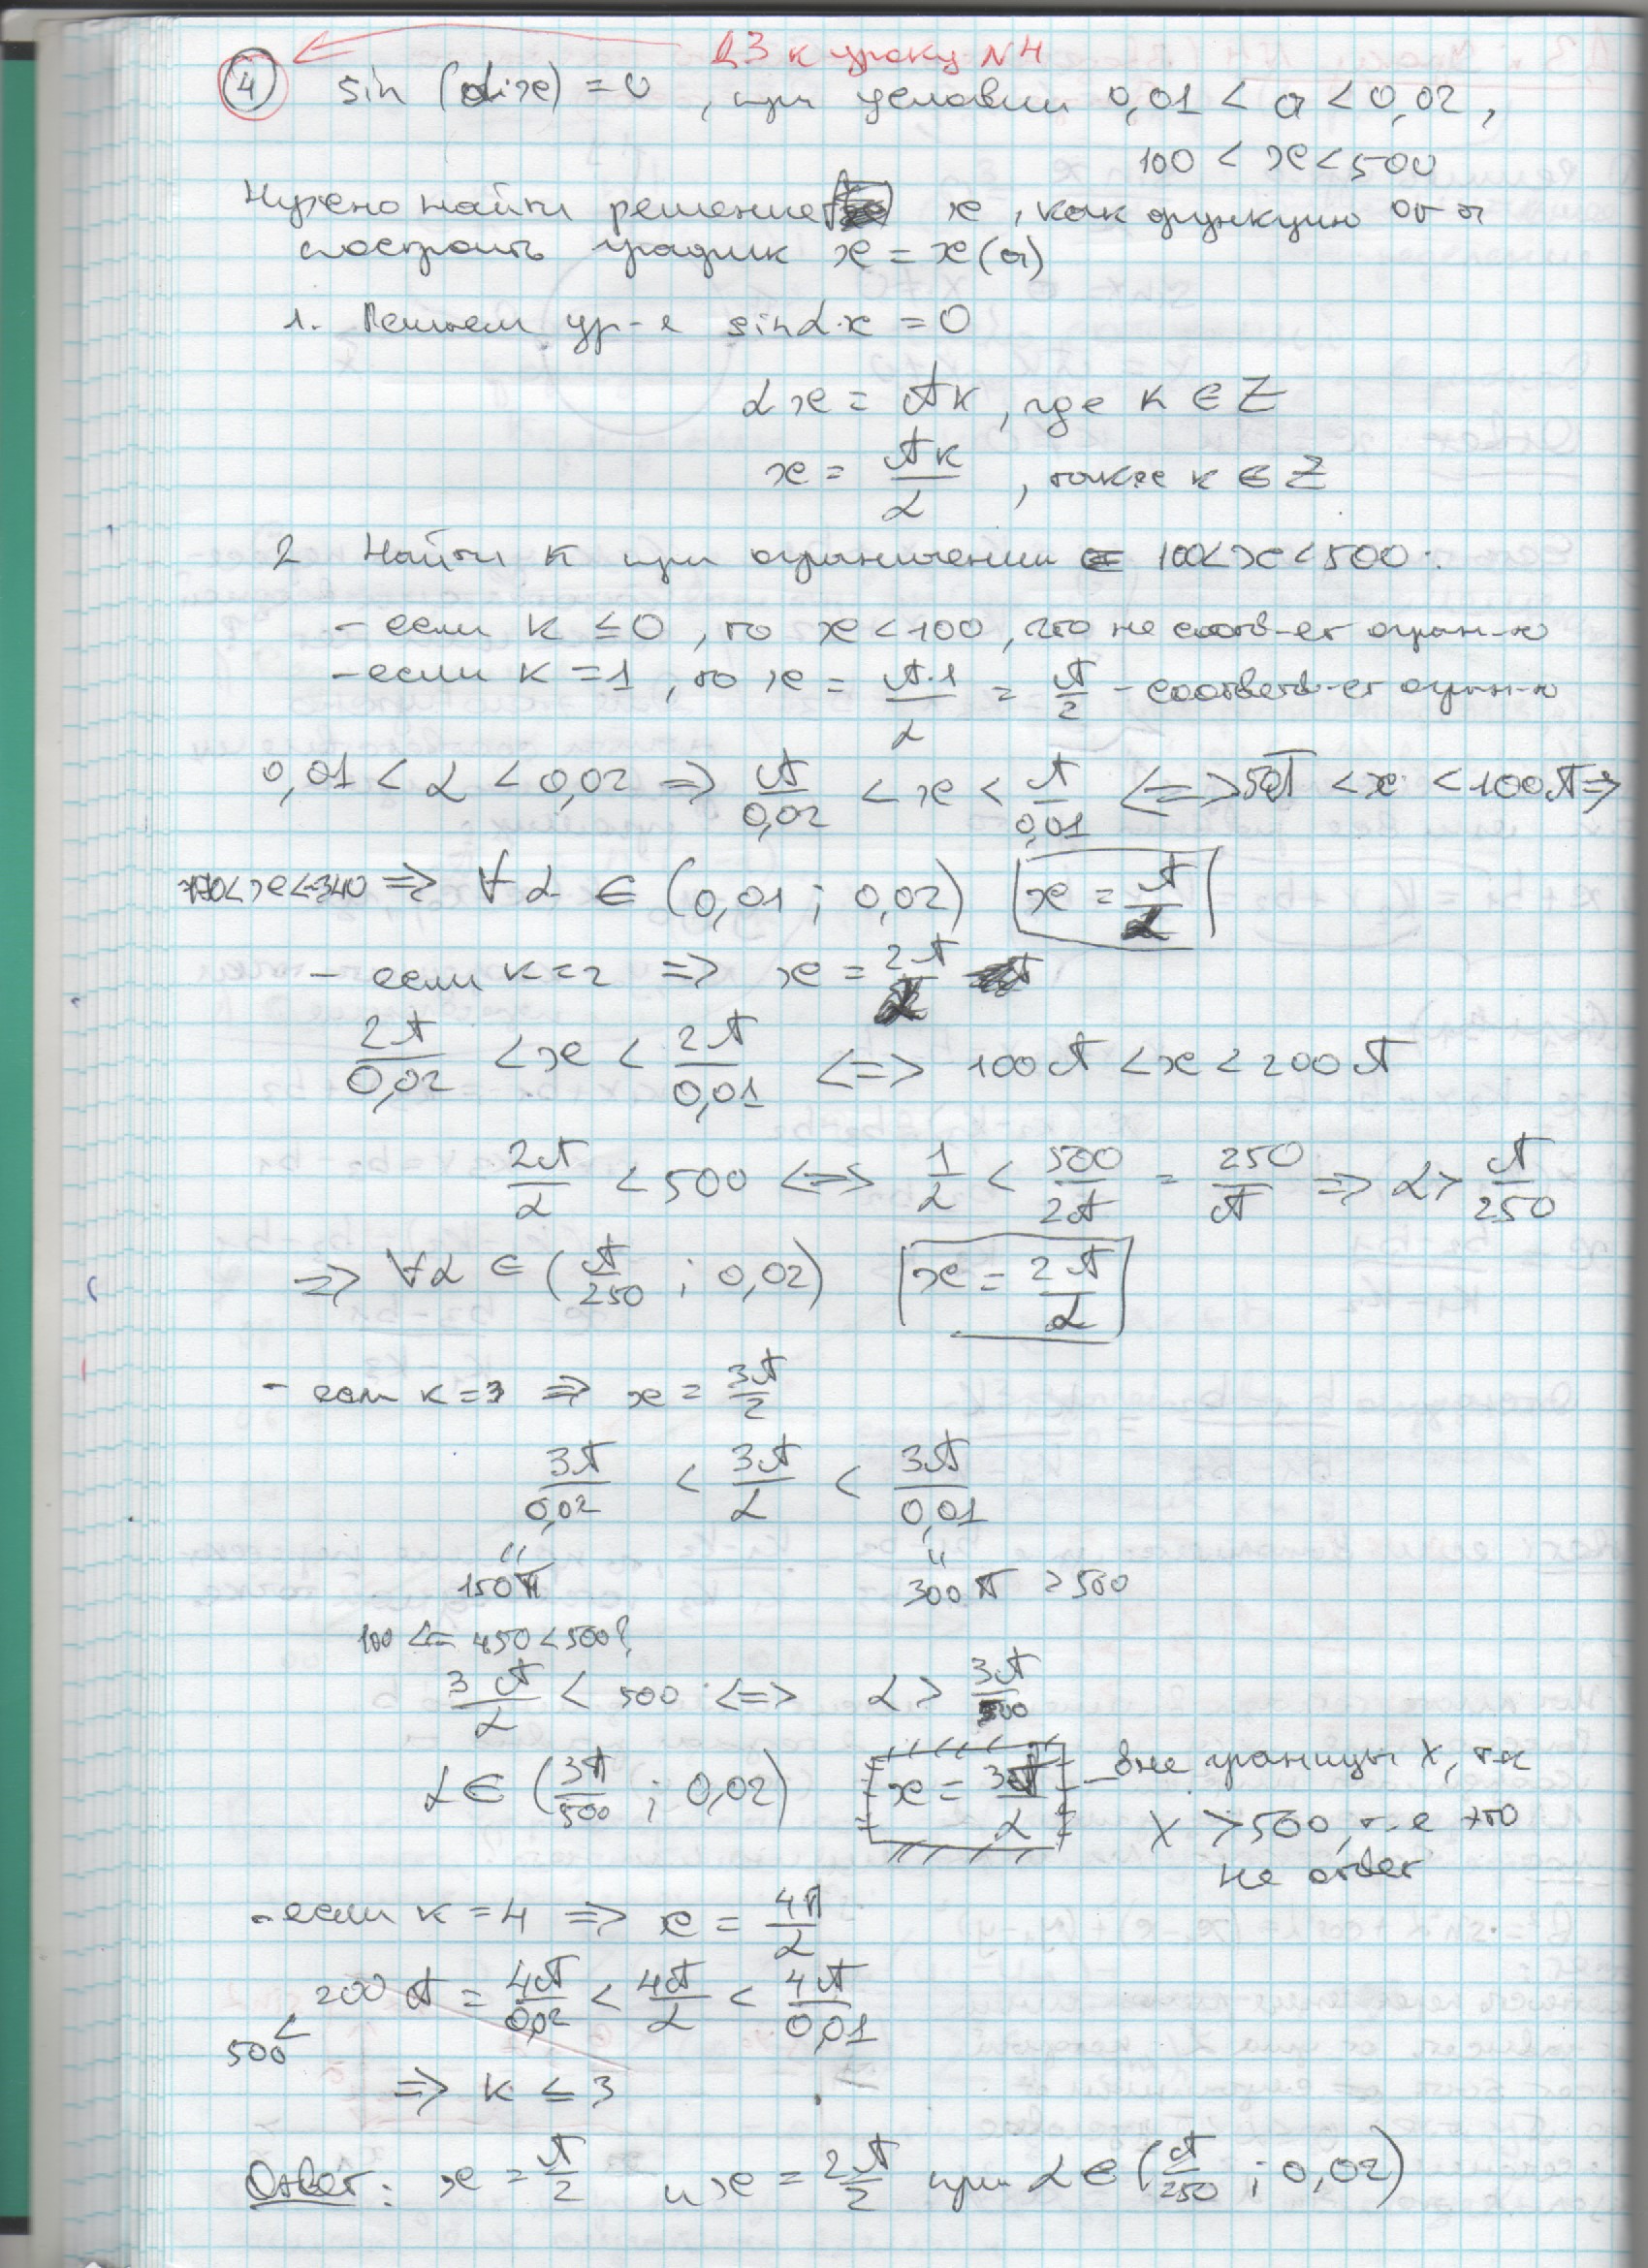 ДЗ к уроку N4
4 sin (α·x) = 0 , при условии 0,01 < a < 0,02 ,
100 < x < 500
Нужно найти решение x , как функцию от a
построить график x = x(a)
1. Решаем ур-е sin α·x = 0
αx = πk , где k ∈ Z
x = πk/α , также k ∈ Z
2 Найти k при ограничении 100<x<500 :
- если k ≤ 0 , то x < 100 , что не соотв-ет огран-ю
- если k = 1 , то x = π·1/α = π/2 - соответв-ет огран-ю
0,01 < α < 0,02 => π/0,02 < x < π/0,01 <=> 50π < x < 100π =>
<x<340 => ∀α ∈ (0,01 ; 0,02) x = π/α
- если k=2 => x = 2π/α
2π/0,02 < x < 2π/0,01 <=> 100π < x < 200π
2π/α < 500 <=> 1/α < 500/2π = 250/π => α > π/250
=> ∀α ∈ (π/250 ; 0,02) x = 2π/α
- если k = 3 => x = 3π/2
3π/0,02 < 3π/α < 3π/0,01
150π 300π > 500
100 <= 450 < 500?
3π/α < 500 <=> α > 3π/500
α ∈ (3π/500 ; 0,02) x = 3π/α - вне границы X, т.к
X > 500, т-е это
не ответ
- если k = 4 => x = 4π/α
200π = 4π/0,02 < 4π/α < 4π/0,01
500 <
=> k ≤ 3
Ответ: x = π/2 и x = 2π/2 при α ∈ (π/250 ; 0,02)